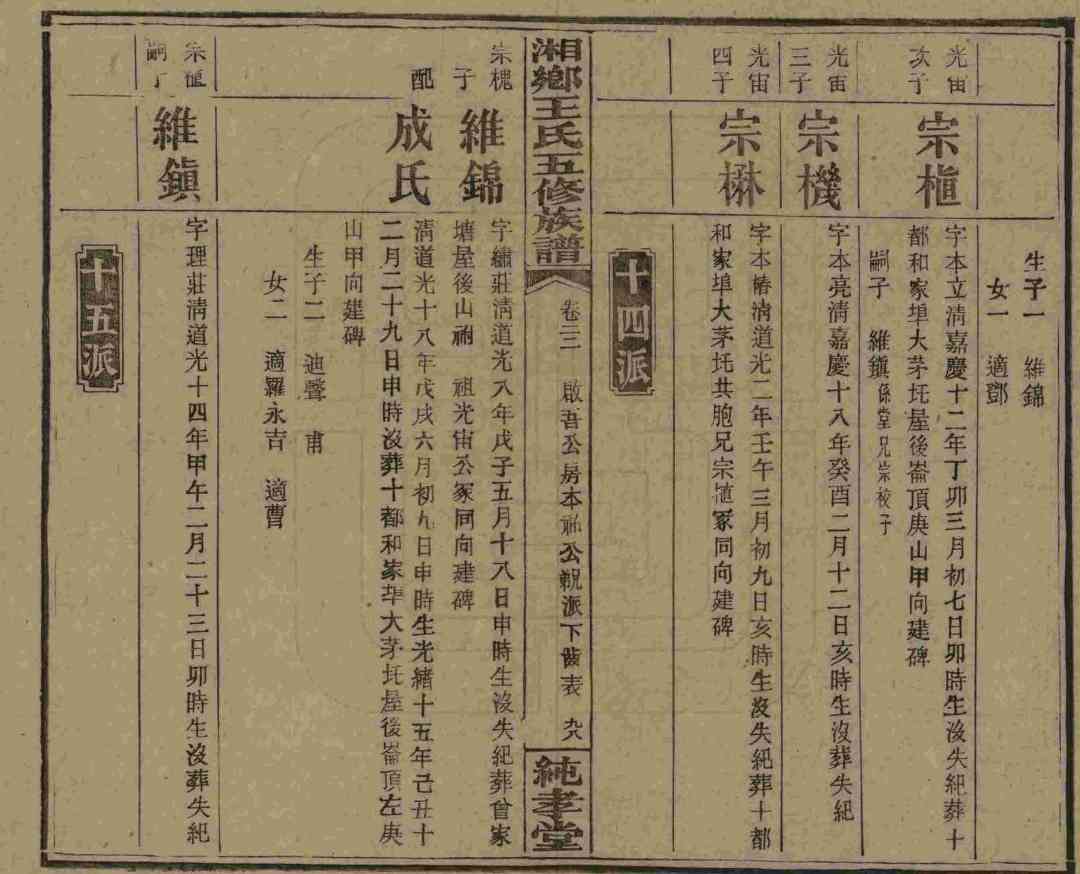 生子一 維錦
女一 適鄧
光宙
次子
宗楦
字本立淸嘉慶十二年丁卯三月初七日卯時生沒失紀葬十
都和家埠大茅坵屋後崙頂庚山甲向建碑
嗣子 維鎭係堂兄宗校子
光宙
三子
宗機
字本亮淸嘉慶十八年癸酉二月十二日亥時生沒葬失紀
光宙
四子
宗楙
字本椿淸道光二年壬午三月初九日亥時生沒失紀葬十都
和家埠大茅坵共胞兄宗楦冢同向建碑
十四派
湘鄉王氏五修族譜
卷三二 啟吾公房本祐公覞派下齒表 九八
純孝堂
宗槐
子
維錦
字繡莊淸道光八年戊子五月十八日申時生沒失紀葬曾家
塘屋後山祔 祖光宙公冢同向建碑
配
成氏
淸道光十八年戊戌六月初九日申時生光緒十五年己丑十
二月二十九日申時沒葬十都和家埠大茅坵屋後崙頂左庚
山甲向建碑
生子二 迪聲 甫
女二 適羅永吉 適曹
宗楦
嗣子
維鎭
字理莊淸道光十四年甲午二月二十三日卯時生沒葬失紀
十五派